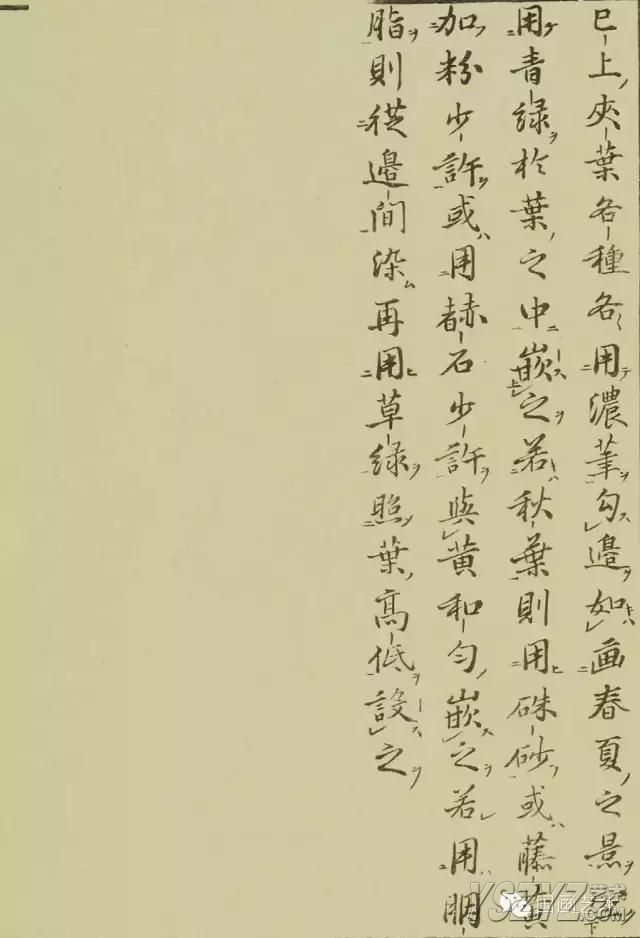 巳上夾葉各種各用濃筆勾邊如画春夏之景
用青緑於葉之中嵌之若秋葉則用硃砂或藤黄
加粉少許或用赭石少許與黄和勻嵌之若用胭
脂則從邊間染再用草緑照葉高低設之
国画艺术